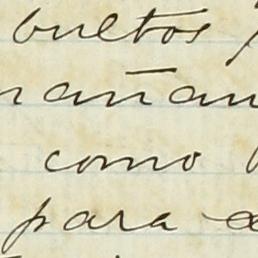 bultos
mañan
como
para